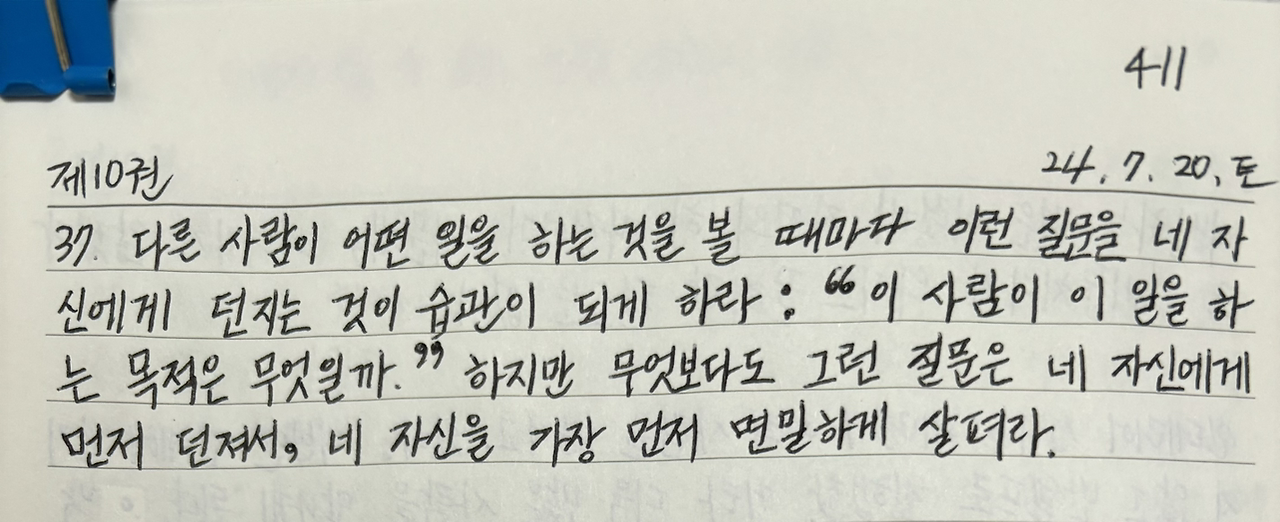 411
제10권 24. 7. 20. 토
37. 다른 사람이 어떤 일을 하는 것을 볼 때마다 이런 질문을 네 자
신에게 던지는 것이 습관이 되게 하라 : “이 사람이 이 일을 하
는 목적은 무엇일까.” 하지만 무엇보다도 그런 질문은 네 자신에게
먼저 던져서, 네 자신을 가장 먼저 면밀하게 살펴라.